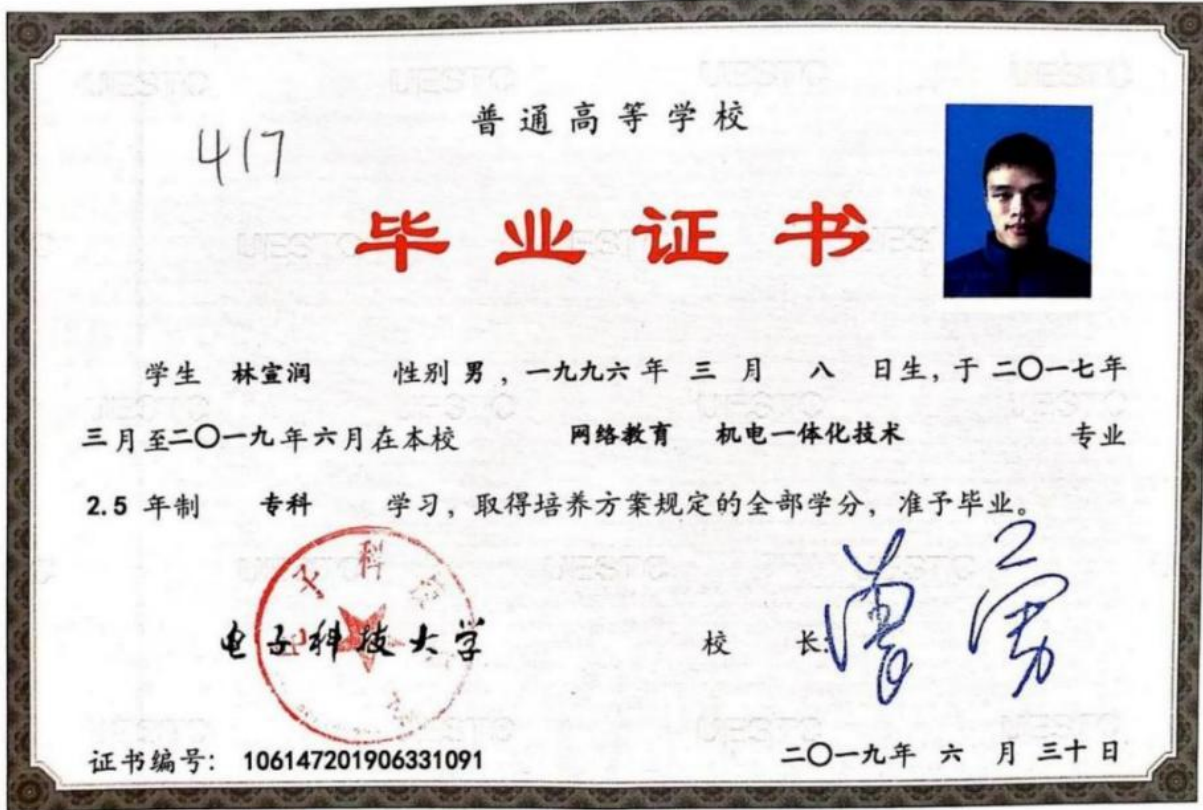 普通高等学校
417
毕业证书
学生 林宣润 性别 男，一九九六年 三 月 八 日生，于 二〇一七年
三月至二〇一九年六月在本校 网络教育 机电一体化技术 专业
2.5 年制 专科 学习，取得培养方案规定的全部学分，准予毕业。
电子科技大学 校 长: 曾勇
证书编号: 106147201906331091 二〇一九年 六 月 三十 日